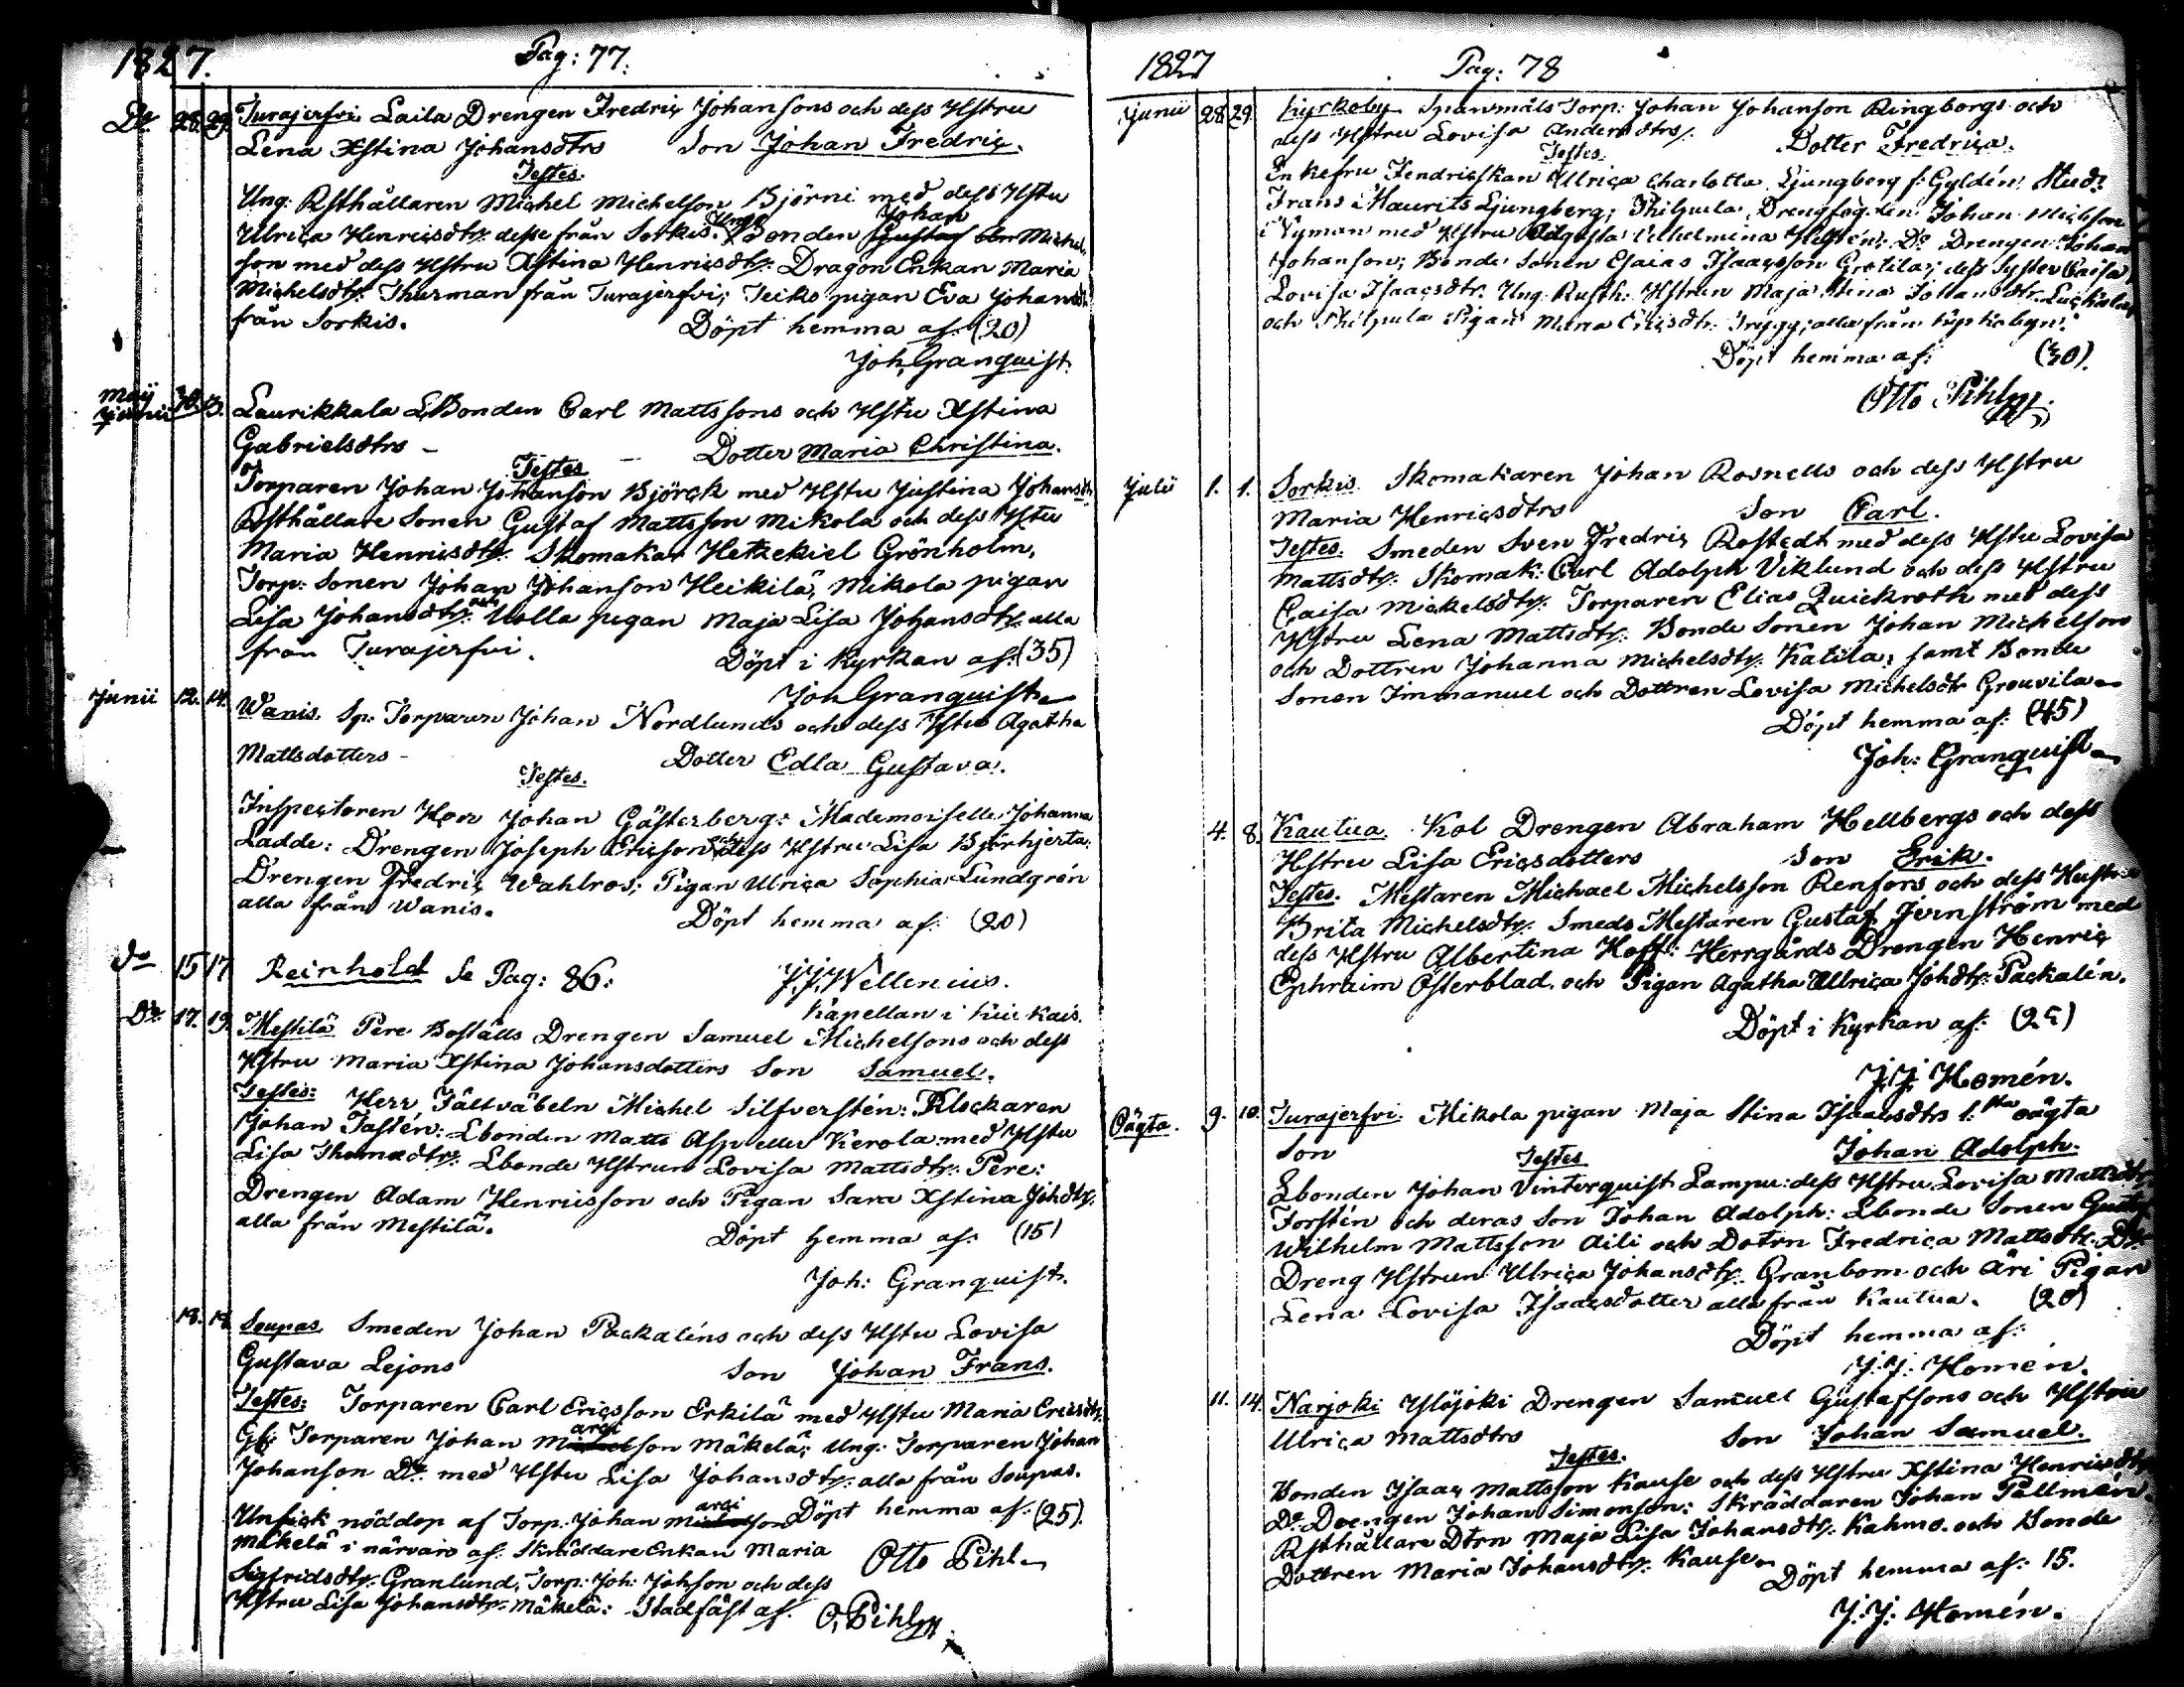 1827. Pag: 77.
Do 28. 29. Turajerfvi Laila Drengen Fredric Johansons och dess Hstru
Lena Xstina Johansdtrs Son Johan Fredric.
Testes.
Ung: Rsthållaren Michel Michelson Björni med dess Hstu
Ulrica Henricsdtr: desse från Sorkis: Unga Bonden Johan Gustaf Michel
son med dess Hstru Xstina Henricsdtr: Dragon Enkan Maria
Michelsdtr: Thurman från Turajerfvi; Teiko pigan Eva Johansdtr
från Sorkis. Döpt hemma af: (20)
Joh, Granquist.
Maij Junii 30. 3. Laurikkala LBonden Carl Mattssons och Hstu Xstina
Gabrielsdtrs – Dotter Maria Christina.
Testes
Torparen Johan Johanson Björck med Hstu Justina Johansdtr
Rsthållare Sonen Gustaf Mattsson Mikola och dess Hstu
Maria Henricsdtr: Skomakar Hetzekiel Grönholm,
Torp: Sonen Johan Johanson Heikilä, Mikola pigan
Lisa Johansdtr: och Uolla pigan Maja Lisa Johansdtr. alla
från Turajerfvi. Döpt i Kyrkan af: (35)
Joh Granquist
Junii 12. 14. Wanis. Sp: Torparen Johan Nordlunds och dess Hstus Agatha
Mattsdotters – Dotter Edla Gustava.
Testes.
Inspectoren Herr Johan Gästerberg: Mademoiselle Johanna
Ladde: Drengen Joseph Ericson och dess Hstru Lisa Björhjerta.
Drengen Fredric Wahlros; Pigan Ulrica Sophia Lundgrén
alla från Wanis. Döpt hemma af: (20)
do 15 17 Reinhold Se Pag: 86: J.J. Wellenius.
Kapellan i Kiukais.
Do 17. 19. Mestilä Pere Boställs Drengen Samuel Michelsons och dess
Hstru Maria Xstina Johansdotters Son Samuel.
Testes: Herr Fältväbeln Michel Silfverstén: Klockaren
Johan Tastén: Lbonden Matts Asp eller Kerola med Hstu
Lisa Thomædtr: Lbonde Hstrun Lovisa Mattsdtr: Pere:
Drengen Adam Henricsson och Pigan Sara Xstina Johdtr:
alla från Mestilä. Döpt hemma af: (15)
Joh: Granquist.
18. 18. Soupas Smeden Johan Packaléns och dess Hstu Lovisa
Gustava Lejons Son Johan Frans.
Testes: Torparen Carl Ericsson Erkilä med Hstu Maria Ericsdtr.
Gf: Torparen Johan Michelson Mäkelä; Ung: Torparen Johan
Johanson Do med Hstu Lisa Johansdtr: alla från Soupas.
Unfick nöddop af Torp: Johan Michelson Döpt hemma af: (25).
Mäkelä i närvaro af: Skräddare Enkan Maria Otto Pihl
Sigfridsdtr: Granlund, Torp: Joh: Johson och dess
Hstru Lisa Johansdtr: Mäkelä: Stadfäst af. O. Pihl
1827 Pag: 78
Junii 28 29. Kyrkoby Spanmåls Torp: Johan Johanson Ringborgs och
dess Hstru Lovisa Andersdtrs. Dotter Fredrica.
Testes.
Enkefru Fendricskan Ulrica Charlotta Ljungberg f: Gyldén: Stud:
Frans Maurits Ljungberg; Drengen Johan
Nyman med Hstru Wilhelmina Do Drengen Johan
Johanson; Bonde Sonen Esaias Isaacsson dess Syster Caisa
Lovisa Isaacsdtr. Ung. Rusth: Hstrun Maja Stina Johansdtr.
och Pigan Maria Ericsdtr. Trygg; alla från Kyrkobyn.
Döpt hemma af: (30).
Otto Pihl
Julii 1. 1. Sorkis. Skomakaren Johan Rosnells och dess Hstru
Maria Henricsdtrs Son Carl.
Testes. Smeden Sven Fredric Rostedt med dess Hstu Lovisa
Mattsdtr: Skomak: Carl Adolph Viklund och dess Hstru
Caisa Mickelsdtr: Torparen Elias Quickroth med dess
Hstru Lena Mattsdtr: Bonde Sonen Johan Michelson
och Dottren Johanna Michelsdtr: Katila; samt Bonde
Sonen Immanuel och Dottren Lovisa Michelsdtr Grouvila
Döpt hemma af: (45)
Joh: Granquist
4. 8. Kautua. Kol Drengen Abraham Hellbergs och dess
Hstru Lisa Ericsdotters Son Erik.
Testes. Mestaren Michael Michelsson Renfors och dess Hustru
Brita Michelsdtr: Smeds Mestaren Gustaf Jernström med
dess Hstru Albertina Hoff: Herrgårds Drengen Henric
Ephraim Österblad. och Pigan Agatha Ullrica Johdtr: Packalén.
Döpt i Kyrkan af: (25)
J.J. Homén.
Oägta. 9. 10. Turajerfvi. Mikola pigan Maja Stina Isaacsdtrs 1:sta oägta
Son Testes Johan Adolph.
Lbonden Johan Vinterquist Lampu: dess Hstru Lovisa Mattsdtr
Forstén och deras Son Johan Adolph: Lbonde Sonen Gustaf
Wilhelm Mattsson Aili och Dotrn Fredrica Mattsdtr. Do
Dreng Hstrun Ulrica Johansdtr. Granbom och Äri Pigan
Lena Lovisa Isaacsdotter alla från Kautua. (20)
Döpt hemma af:
J.J. Homén.
11. 14. Narjoki Ylöjoki Drengen Samuel Gustafsons och Hstru
Ulrica Mattsdtrs Son Johan Samuel.
Testes.
Bonden Isaac Mattsson Kause och dess Hstru Xstina Henricsdtr
Do Drengen Johan Simonson: Skräddaren Johan Pallmén.
Rsthållare Dtrn Maja Lisa Johansdtr. Kahmo. och Bonde
Dottren Maria Johansdtr: Kause Döpt hemma af: 15.
J.J. Homén.